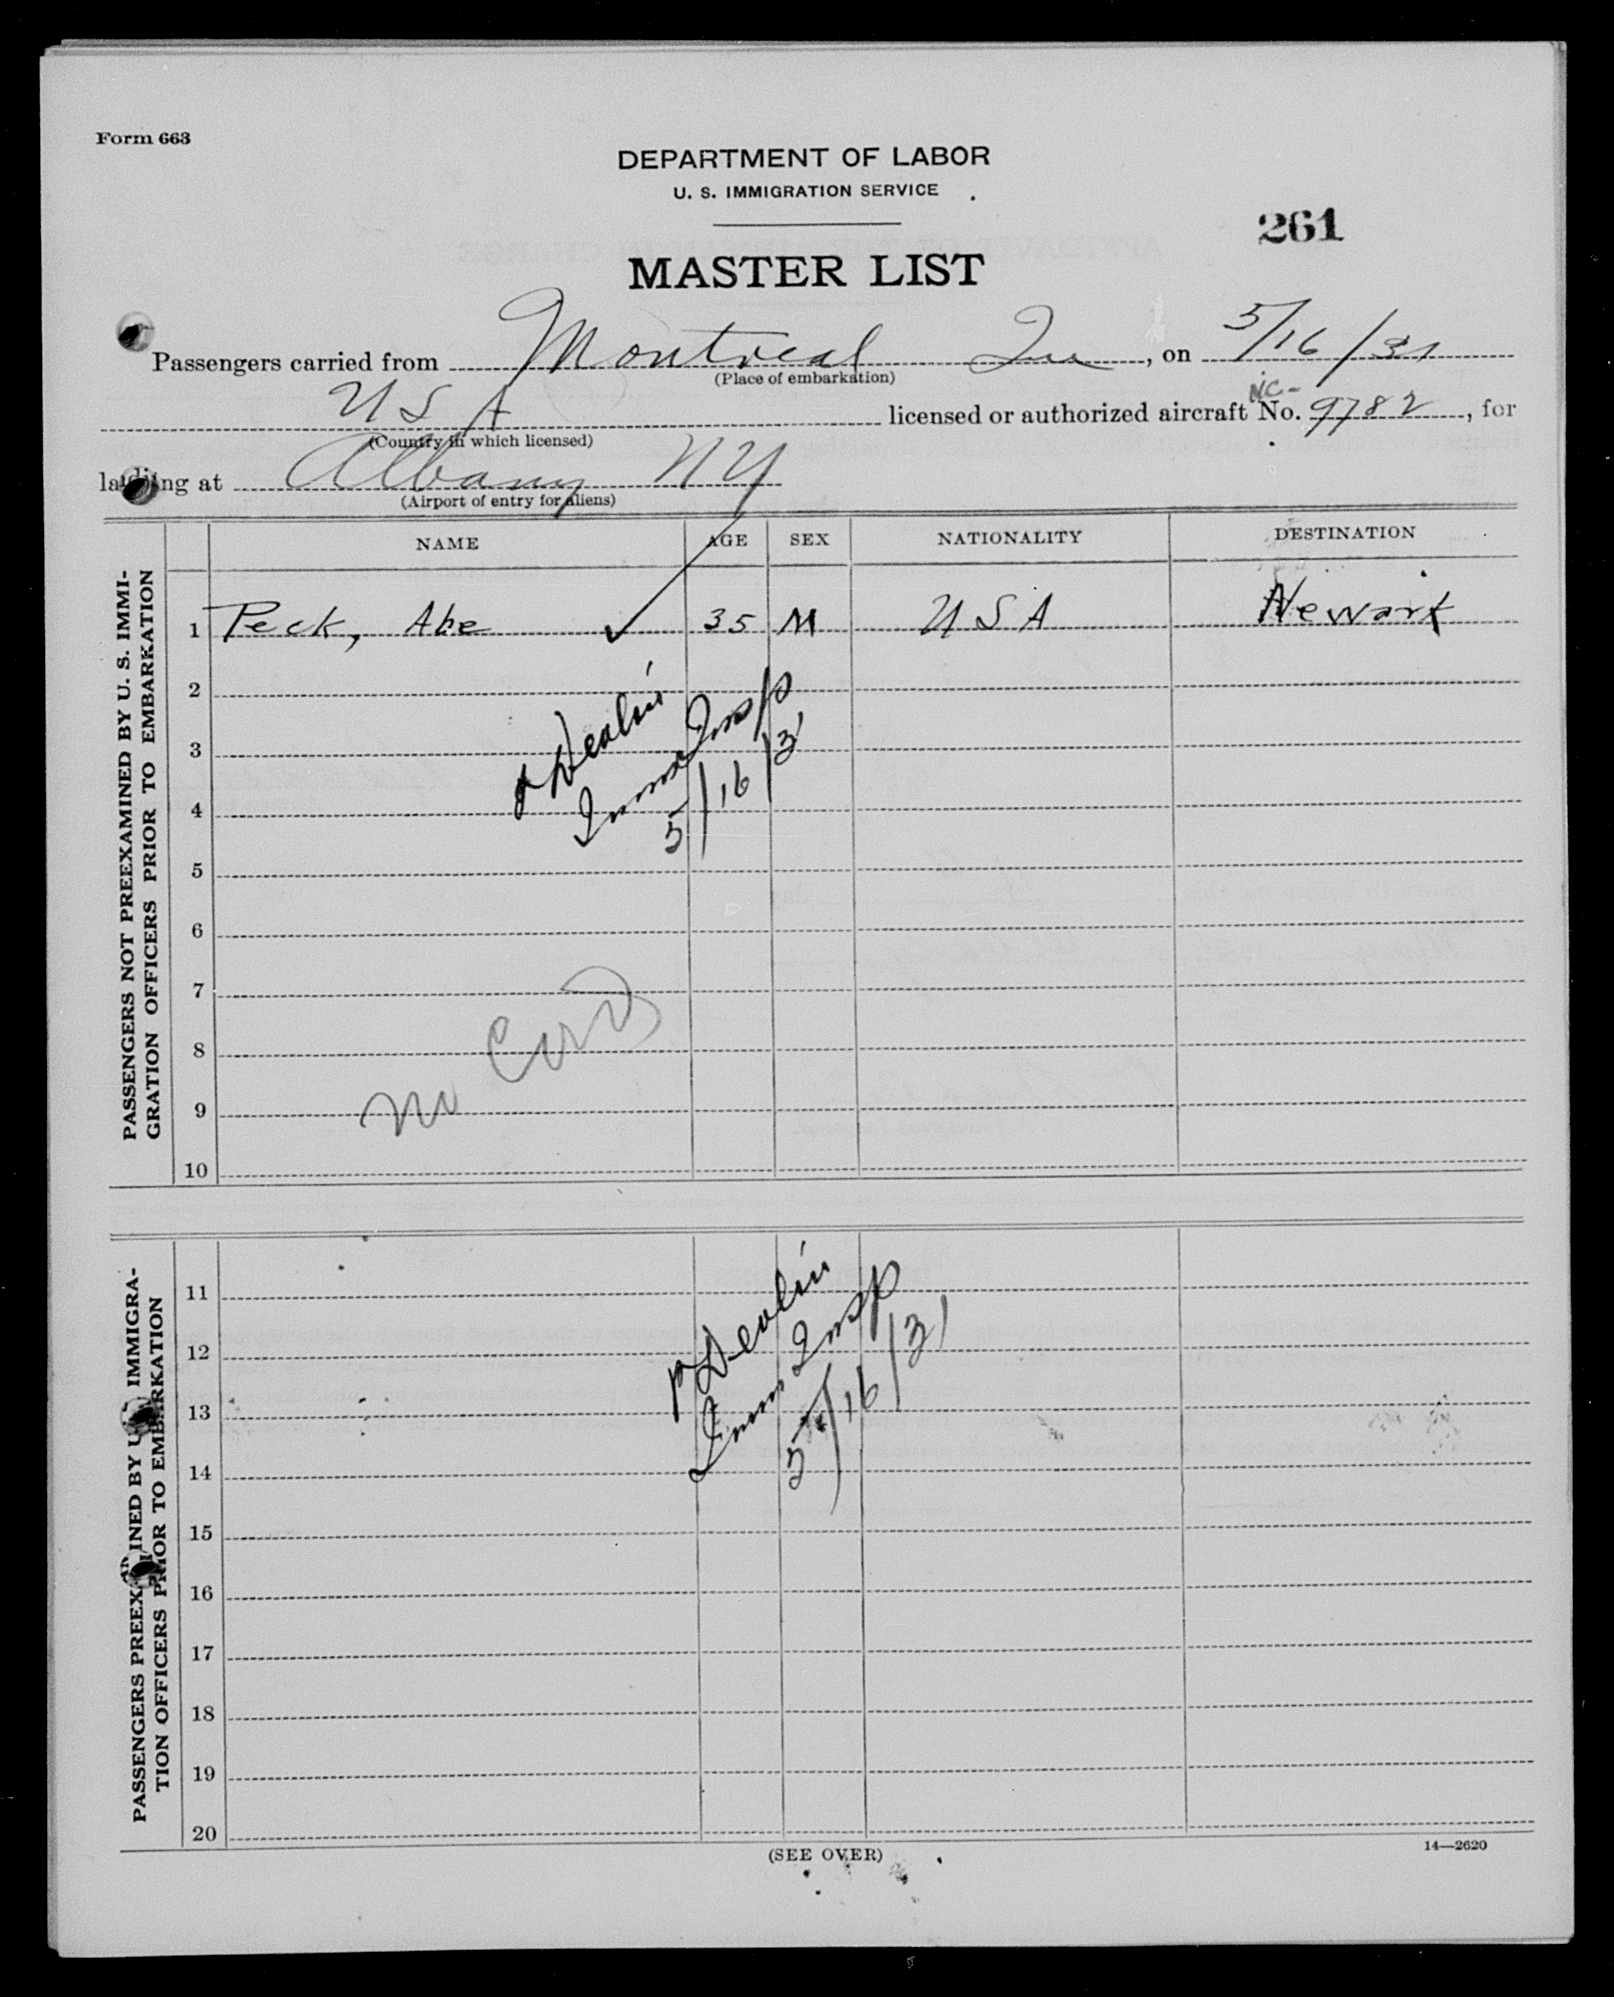 Form 663
DEPARTMENT OF LABOR
U. S. IMMIGRATION SERVICE
261
MASTER LIST
Passengers carried from Montreal Que, on 5/16/31
(Place of embarkation)
USA licensed or authorized aircraft NC- No. 9782, for
(Country in which licensed)
landing at Albany NY
(Airport of entry for aliens)
NAME AGE SEX NATIONALITY DESTINATION
PASSENGERS NOT PREEXAMINED BY U. S. IMMI-
GRATION OFFICERS PRIOR TO EMBARKATION
1 Peck, Abe 35 M USA Newark
2
3
4
5
6
7
8
9
10
Devlin
Imm Insp
5/16/31
no Card
PASSENGERS PREEXAMINED BY U. S. IMMIGRA-
TION OFFICERS PRIOR TO EMBARKATION
11
12
13
14
15
16
17
18
19
20
Devlin
Imm Insp
5/16/31
(SEE OVER)
14—2620